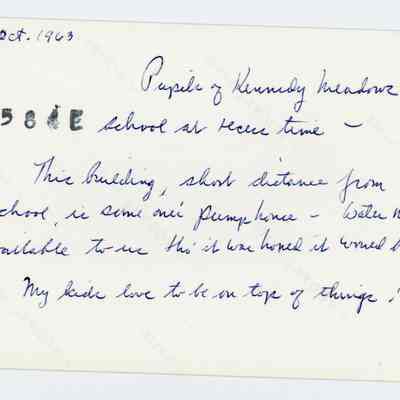 Oct. 1963
Pupils of Kennedy Meadows
584E school at recess time -
This building, short distance from
chool, is some one's pumphouse - Water n
vailable to us tho' it was hoped it would b
My kids love to be on top of things!